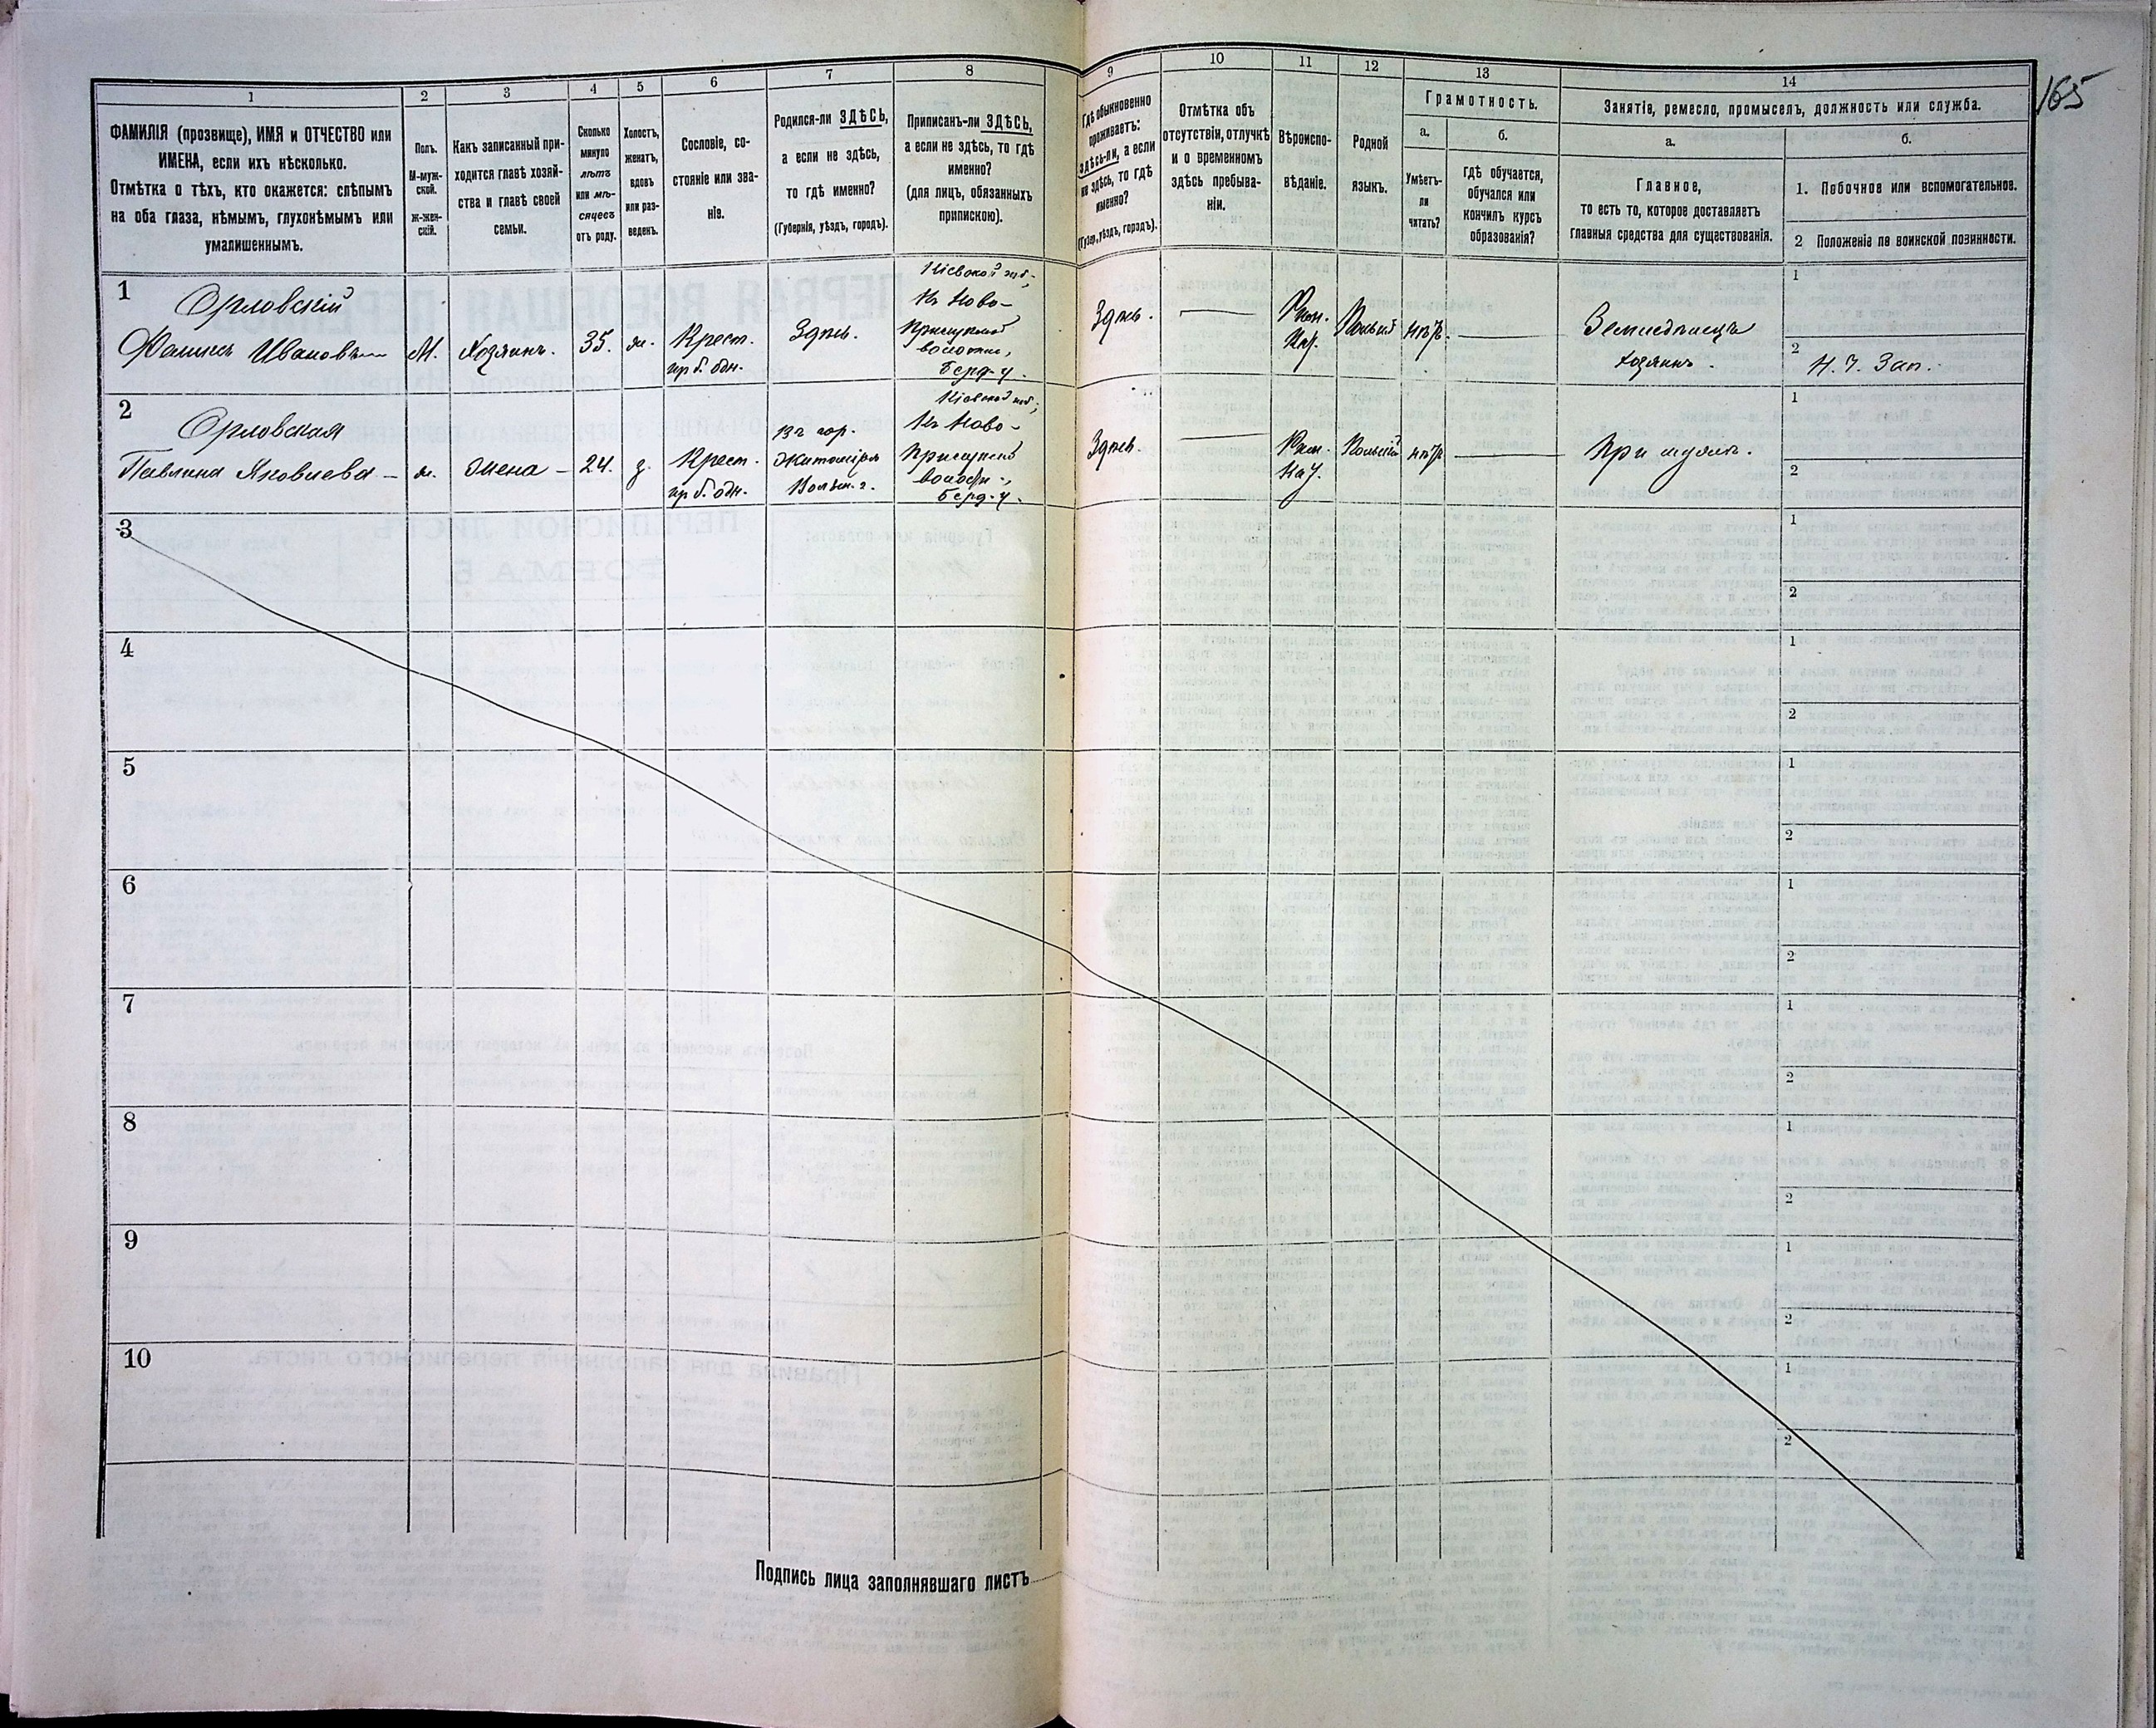 165
1
2
3
4
5
6
7
8
9
10
11
12
13
14
ФАМИЛІЯ (прозвище), ИМЯ и ОТЧЕСТВО или
ИМЕНА, если ихъ нѣсколько.
Отмѣтка о тѣхъ, кто окажется: слѣпымъ
на оба глаза, нѣмымъ, глухонѣмымъ или
умалишеннымъ.
Полъ.
М-муж-
ской.
ж-жен-
скій.
Какъ записанный при-
ходится главѣ хозяй-
ства и главѣ своей
семьи.
Сколько
минуло
лѣтъ
или мѣ-
сяцевъ
отъ роду.
Холостъ,
женатъ,
вдовъ
или раз-
веденъ.
Сословіе, со-
стояніе или зва-
ніе.
Родился-ли ЗДѢСЬ,
а если не здѣсь,
то гдѣ именно?
(Губернія, уѣздъ, городъ).
Приписанъ-ли ЗДѢСЬ,
а если не здѣсь, то гдѣ
именно?
(для лицъ, обязанныхъ
припискою).
Гдѣ обыкновенно
проживаетъ:
здѣсь-ли, а если
не здѣсь, то гдѣ
именно?
(Губер., уѣздъ, городъ).
Отмѣтка объ
отсутствіи, отлучкѣ
и о временномъ
здѣсь пребыва-
ніи.
Вѣроиспо-
вѣданіе.
Родной
языкъ.
Грамотность.
а.
Умѣетъ-
ли
читать?
б.
гдѣ обучается,
обучался или
кончилъ курсъ
образованія?
Занятіе, ремесло, промыселъ, должность или служба.
а.
Главное,
то есть то, которое доставляетъ
главныя средства для существованія.
б.
1. Побочное или вспомогательное.
2 Положеніе по воинской повинности.
1
Орловскій
М.
Хозяинъ.
35.
ж.
Крест.
Здѣсь.
Кіевской губ.,
въ Ново-
Здѣсь.
Рим.
Кат.
нѣтъ.
Земледѣлецъ
хозяинъ.
1
2
2
Орловская
Павлина Яковлева
ж.
жена
24.
з.
Крест.
въ гор.
Житоміръ
Волын. г.
Кіевской губ.,
въ Ново-
Здѣсь.
Рим.
Кат.
нѣтъ
При мужѣ.
1
2
3
1
2
4
1
2
5
1
2
6
1
2
7
1
2
8
1
2
9
1
2
10
1
2
Подпись лица заполнявшаго листъ